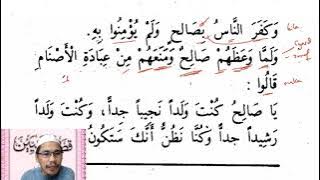 وَكَفَرَ النَّاسُ بِصَالِحٍ وَلَمْ يُؤْمِنُوا بِهِ.
وَلَمَّا وَعَظَهُمْ صَالِحٌ وَمَنَعَهُمْ مِنْ عِبَادَةِ الْأَصْنَامِ
قَالُوا :
يَا صَالِحُ كُنْتَ وَلَداً نَجِيباً جِداً، وَكُنْتَ وَلَداً
رَشِيداً جِداً وَكُنَّا نَظُنُّ أَنَّكَ سَتَكُونُ